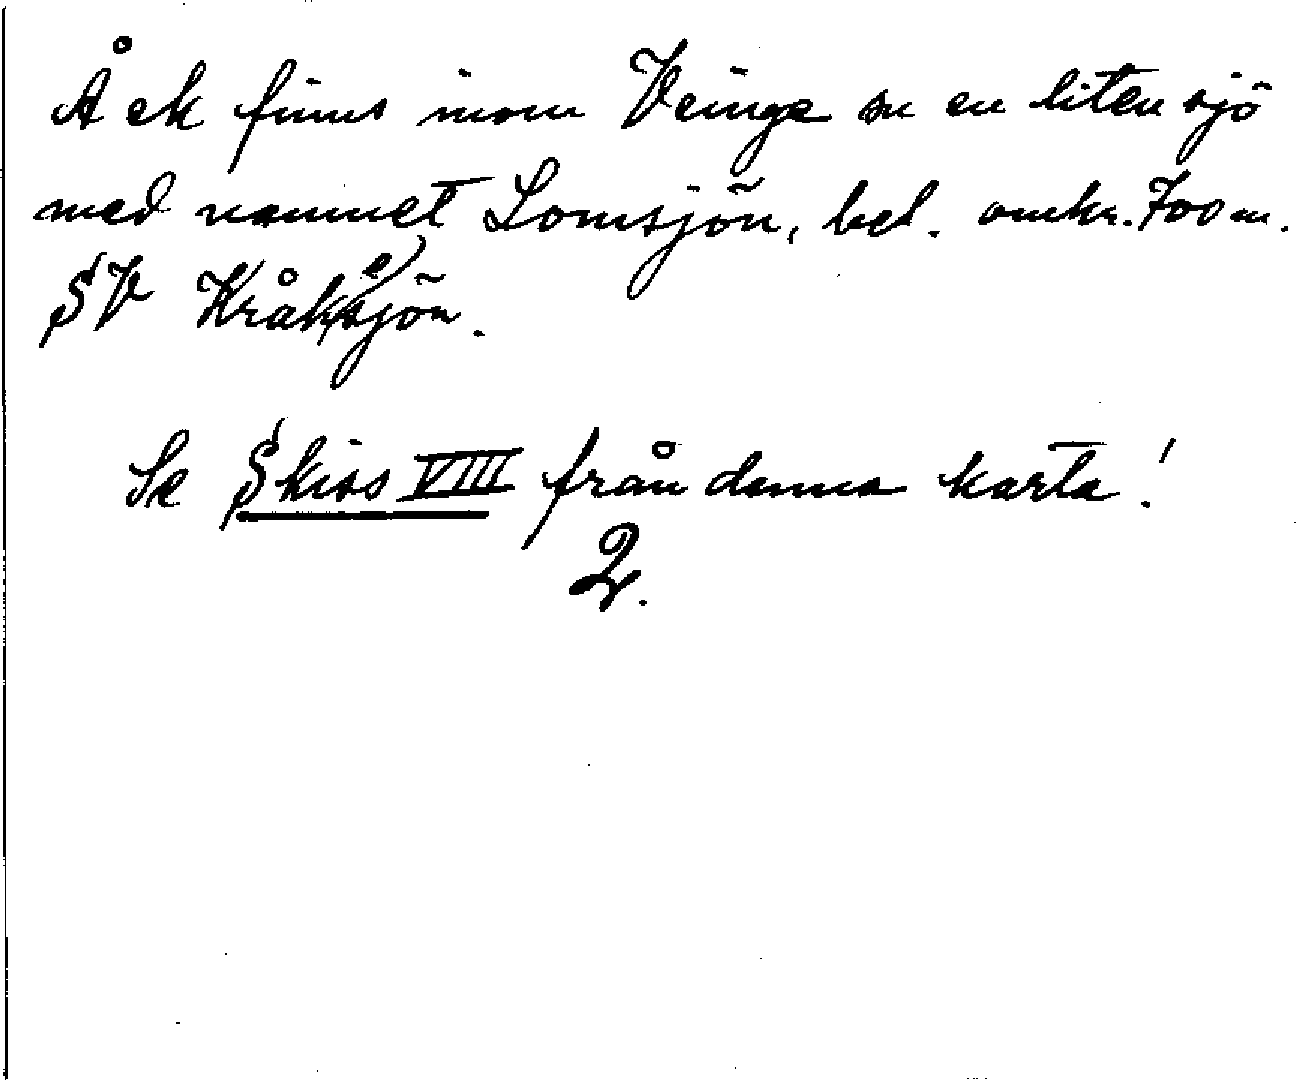 Å ek finns inom Veinge sn en liten sjö
med namnet Lomsjön, bel. omkr. 700 m.
SV Kråkesjön.
Se Skiss VIII från denna karta!
2.